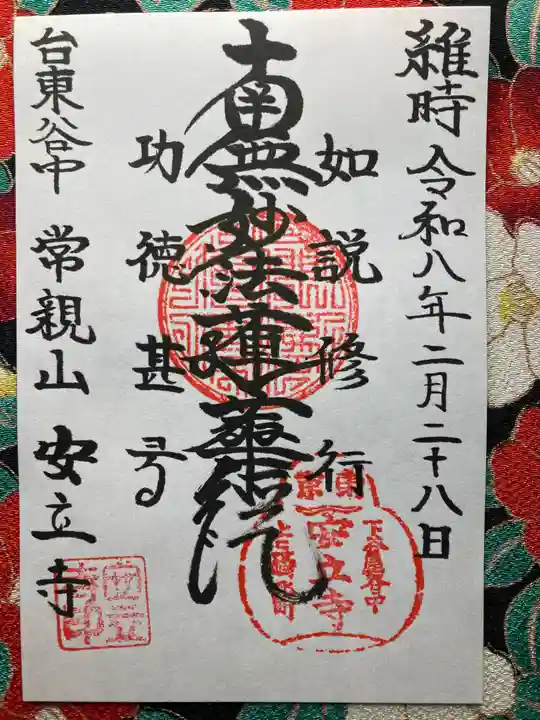 維時 令和八年二月二十八日
如説修行
南無妙法蓮華経
功徳甚多
台東谷中 常親山 安立寺
東京
安立寺
安立寺印